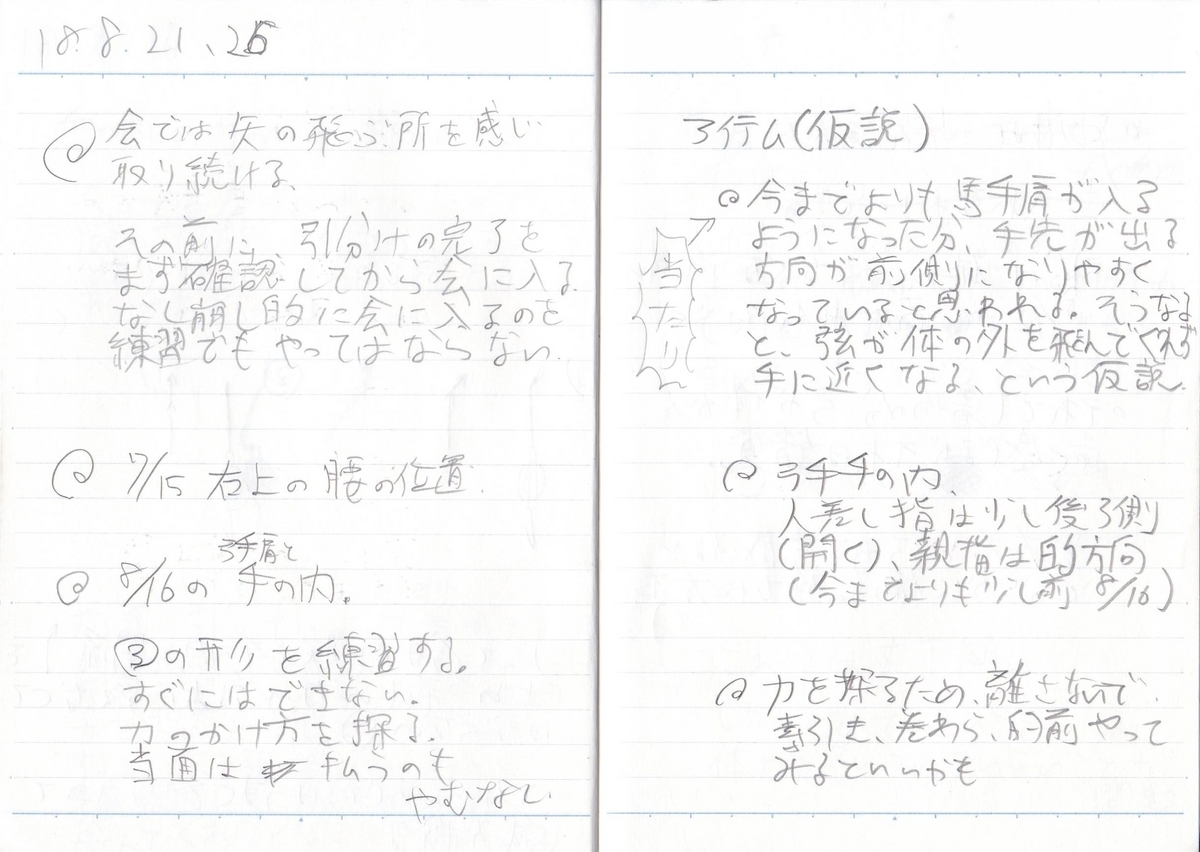 18.8.21、26
@ 会では矢の飛ぶ所を感じ
取り続ける、
その前に、引分けの完了を
まず確認してから会に入る
なし崩し的に会に入るのを
練習でもやってはならない.
@ 7/15 右上の腰の位置.
弓手肩と
@ 8/16の手の内。
③の形を練習する。
すぐにはできない.
力のかけ方を探る.
当面は払うのも
やむなし
アイテム(仮説)
@ 今までよりも馬手肩が入る
ようになった分、手先が出る
方向が前側になりやすく
なっていると思われる。そうなる
と、弦が体の外を飛んで
手に近くなる、という仮説.
当たり
@ 弓手手の内、
人差し指は少し後ろ側
(開く)、親指は的方向
(今までよりも少し前 8/16)
@ 力を探るため、離さないで
素引き、巻わら、的前やって
みるといいかも